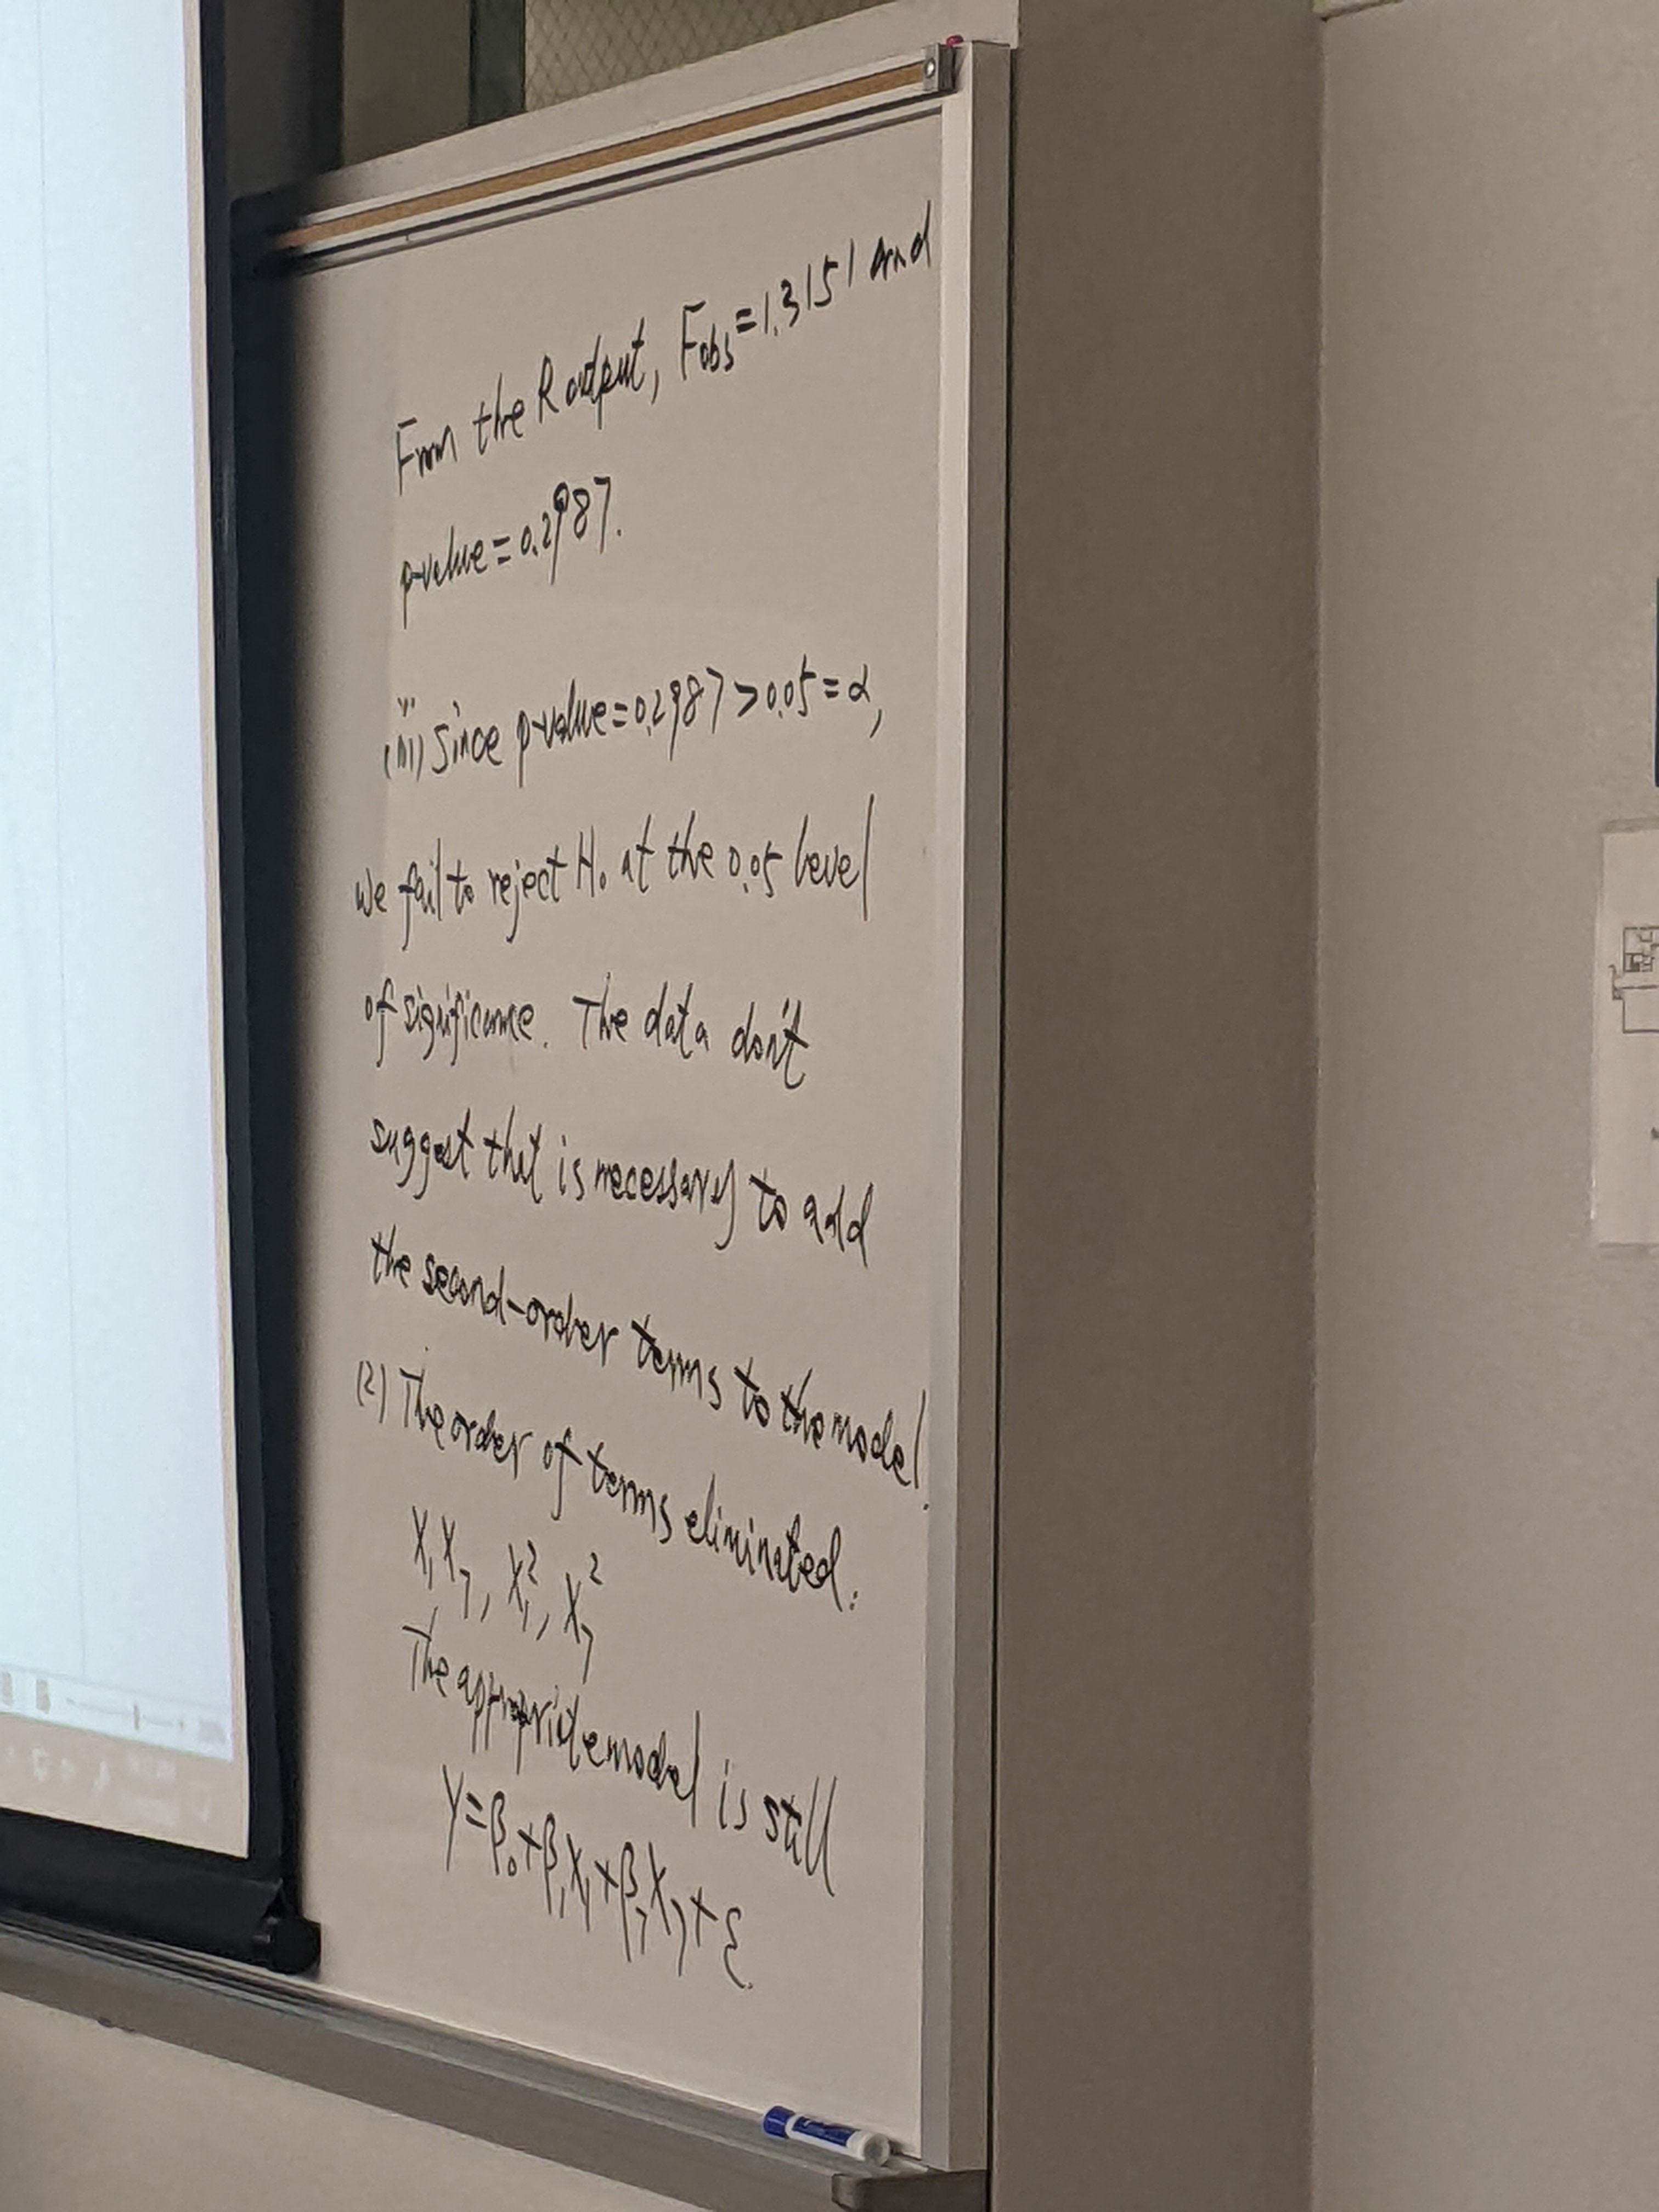 From the R output, Fobs=1.3151 and
p-value=0.2987.
(iii) Since p-value=0.2987>0.05=α,
we fail to reject H₀ at the 0.05 level
of significance. The data don't
suggest that is necessary to add
the second-order terms to the model.
(2) The order of terms eliminated:
X₁X₇, X₁², X₇²
The appropriate model is still
Y=β₀+β₁X₁+β₇X₇+ε.